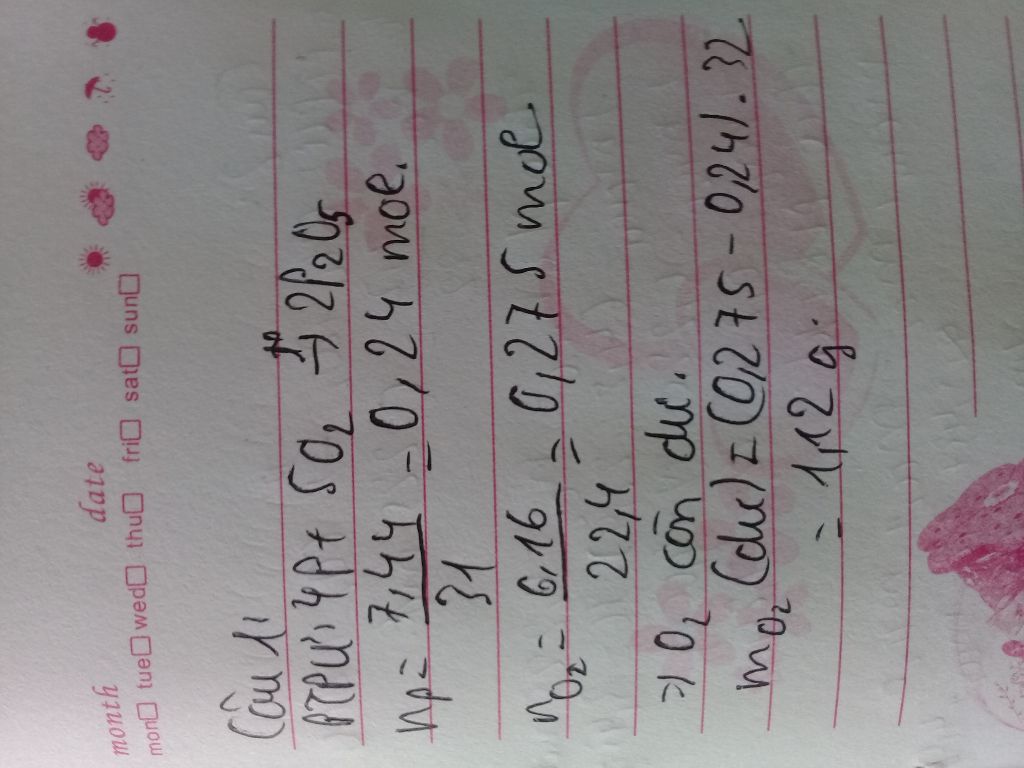 month date
mon tue wed thu fri sat sun
Câu 1:
PTPƯ: 4P + 5O₂ -t°-> 2P₂O₅
nP = 7,44 / 31 = 0,24 mol.
nO₂ = 6,16 / 22,4 = 0,275 mol
=> O₂ còn dư.
mO₂ (dư) = (0,275 - 0,24) . 32
= 1,12 g.